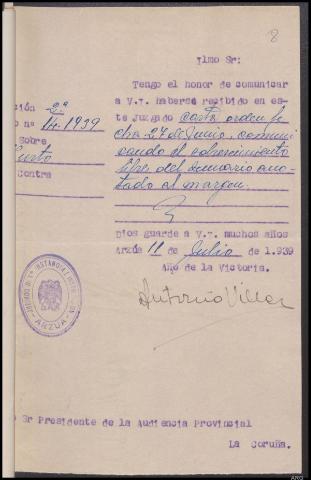 8
Ilmo Sr:
Tengo el honor de comunicar
a V.I. haberse recibido en es-
te Juzgado carta orden fe
cha 27 de Junio, comuni
cando el sobreseimiento
libre del sumario ano-
tado al margen.
ción 2ª
o nº 14-1939
Sobre
Hurto
Contra
Dios guarde a V.I. muchos años
Arzúa 11 de Julio de 1.939
Año de la Victoria.
Antonio Villar
ARZUA
Sr Presidente de la Audiencia Provincial
La Coruña.